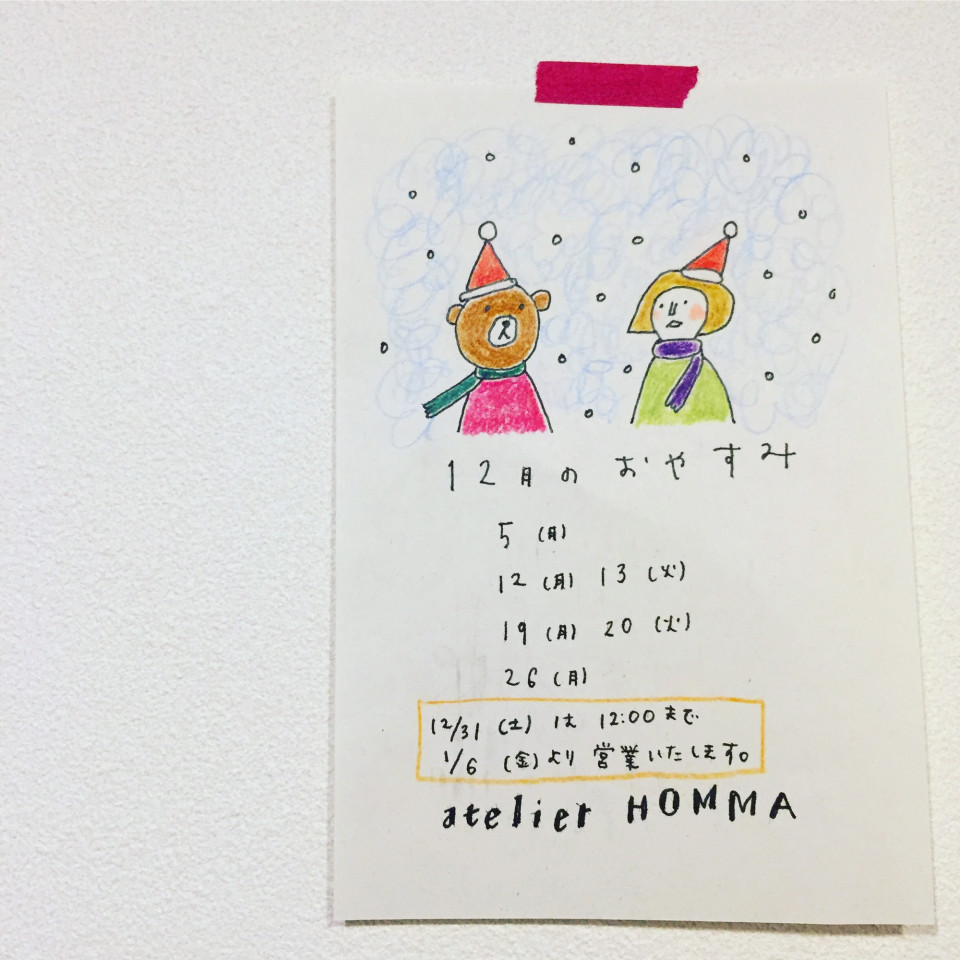 12月のおやすみ
5(月)
12(月) 13(火)
19(月) 20(火)
26(月)
12/31(土)は12:00まで
1/6(金)より営業いたします。
atelier HOMMA